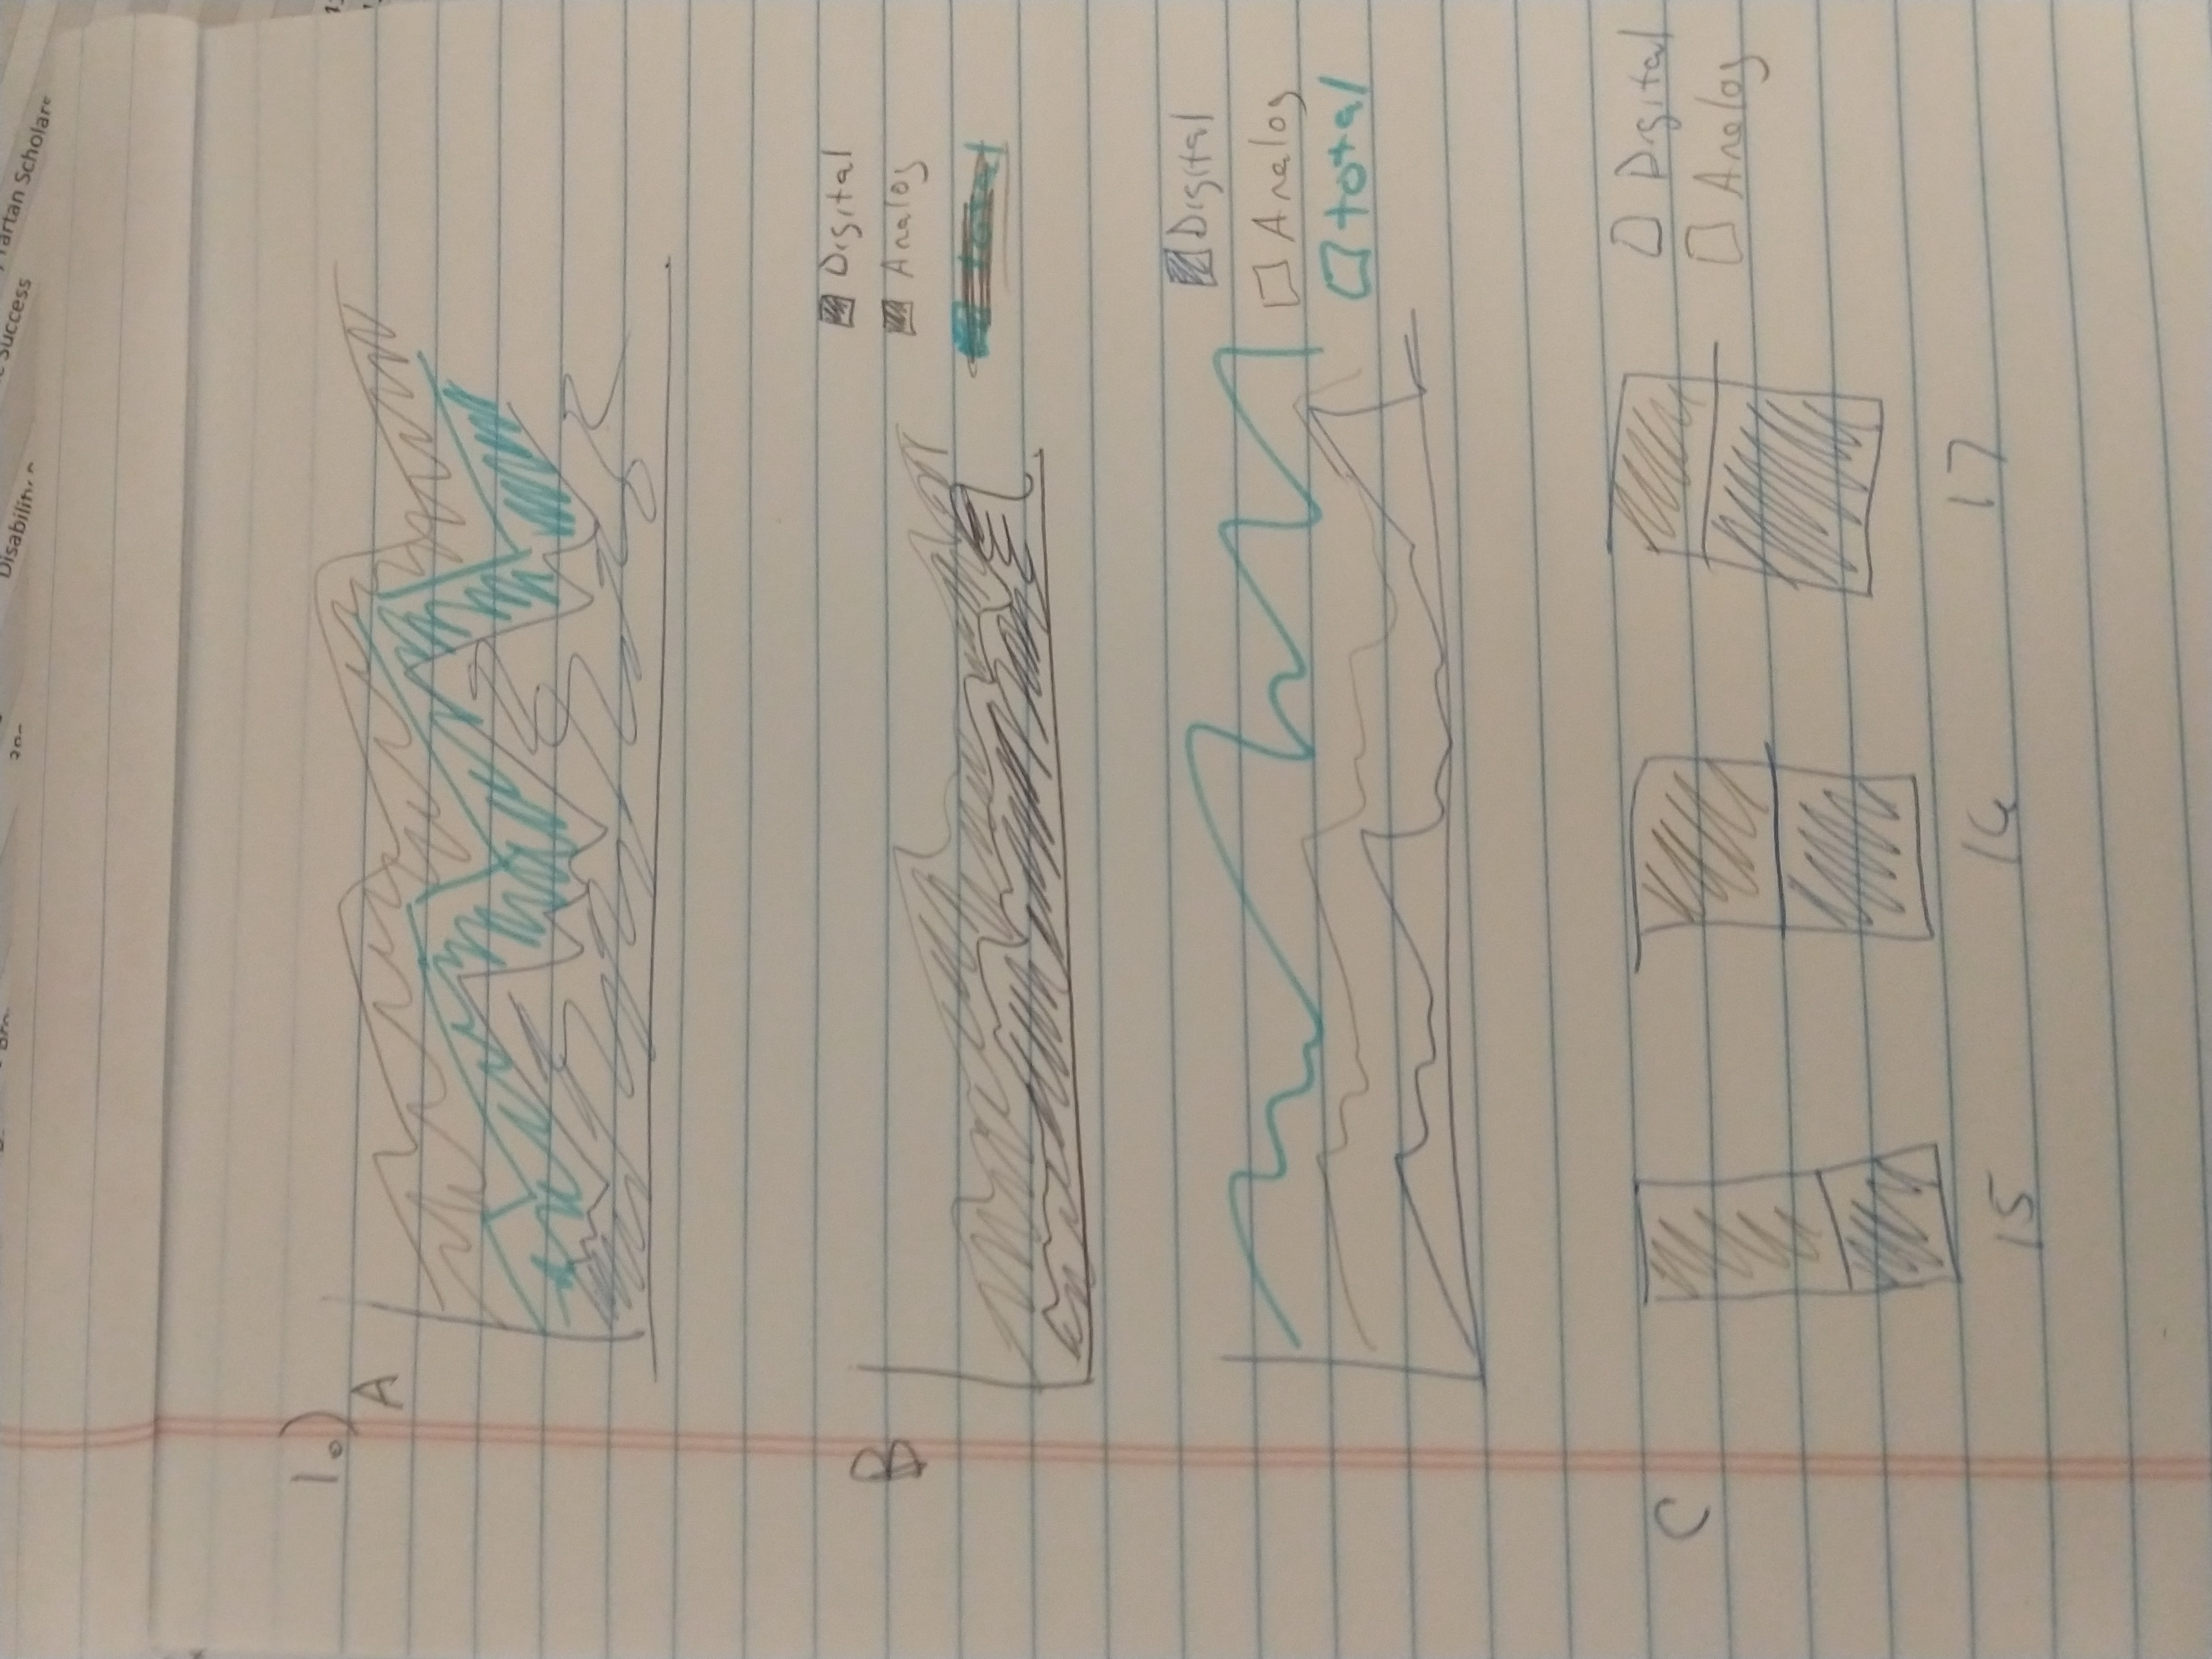 Disability
Success
artan Scholars
1.)
A
B
Digital
Analog
total
Digital
Analog
total
C
Digital
Analog
15
16
17